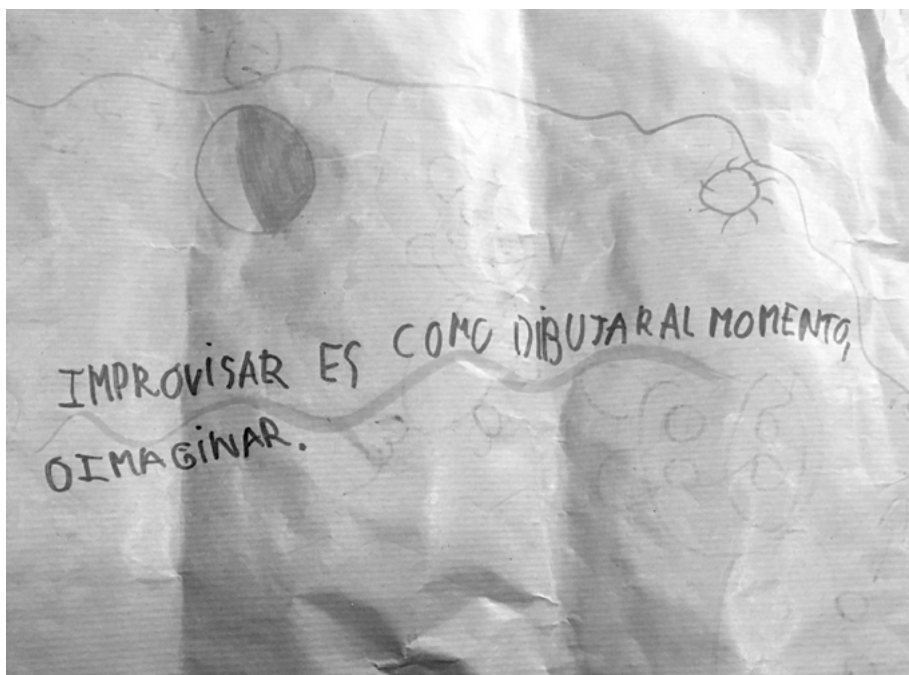 IMPROViSAR ES COMO DiBUJAR AL MOMENTO,
O IMAGiNAR.